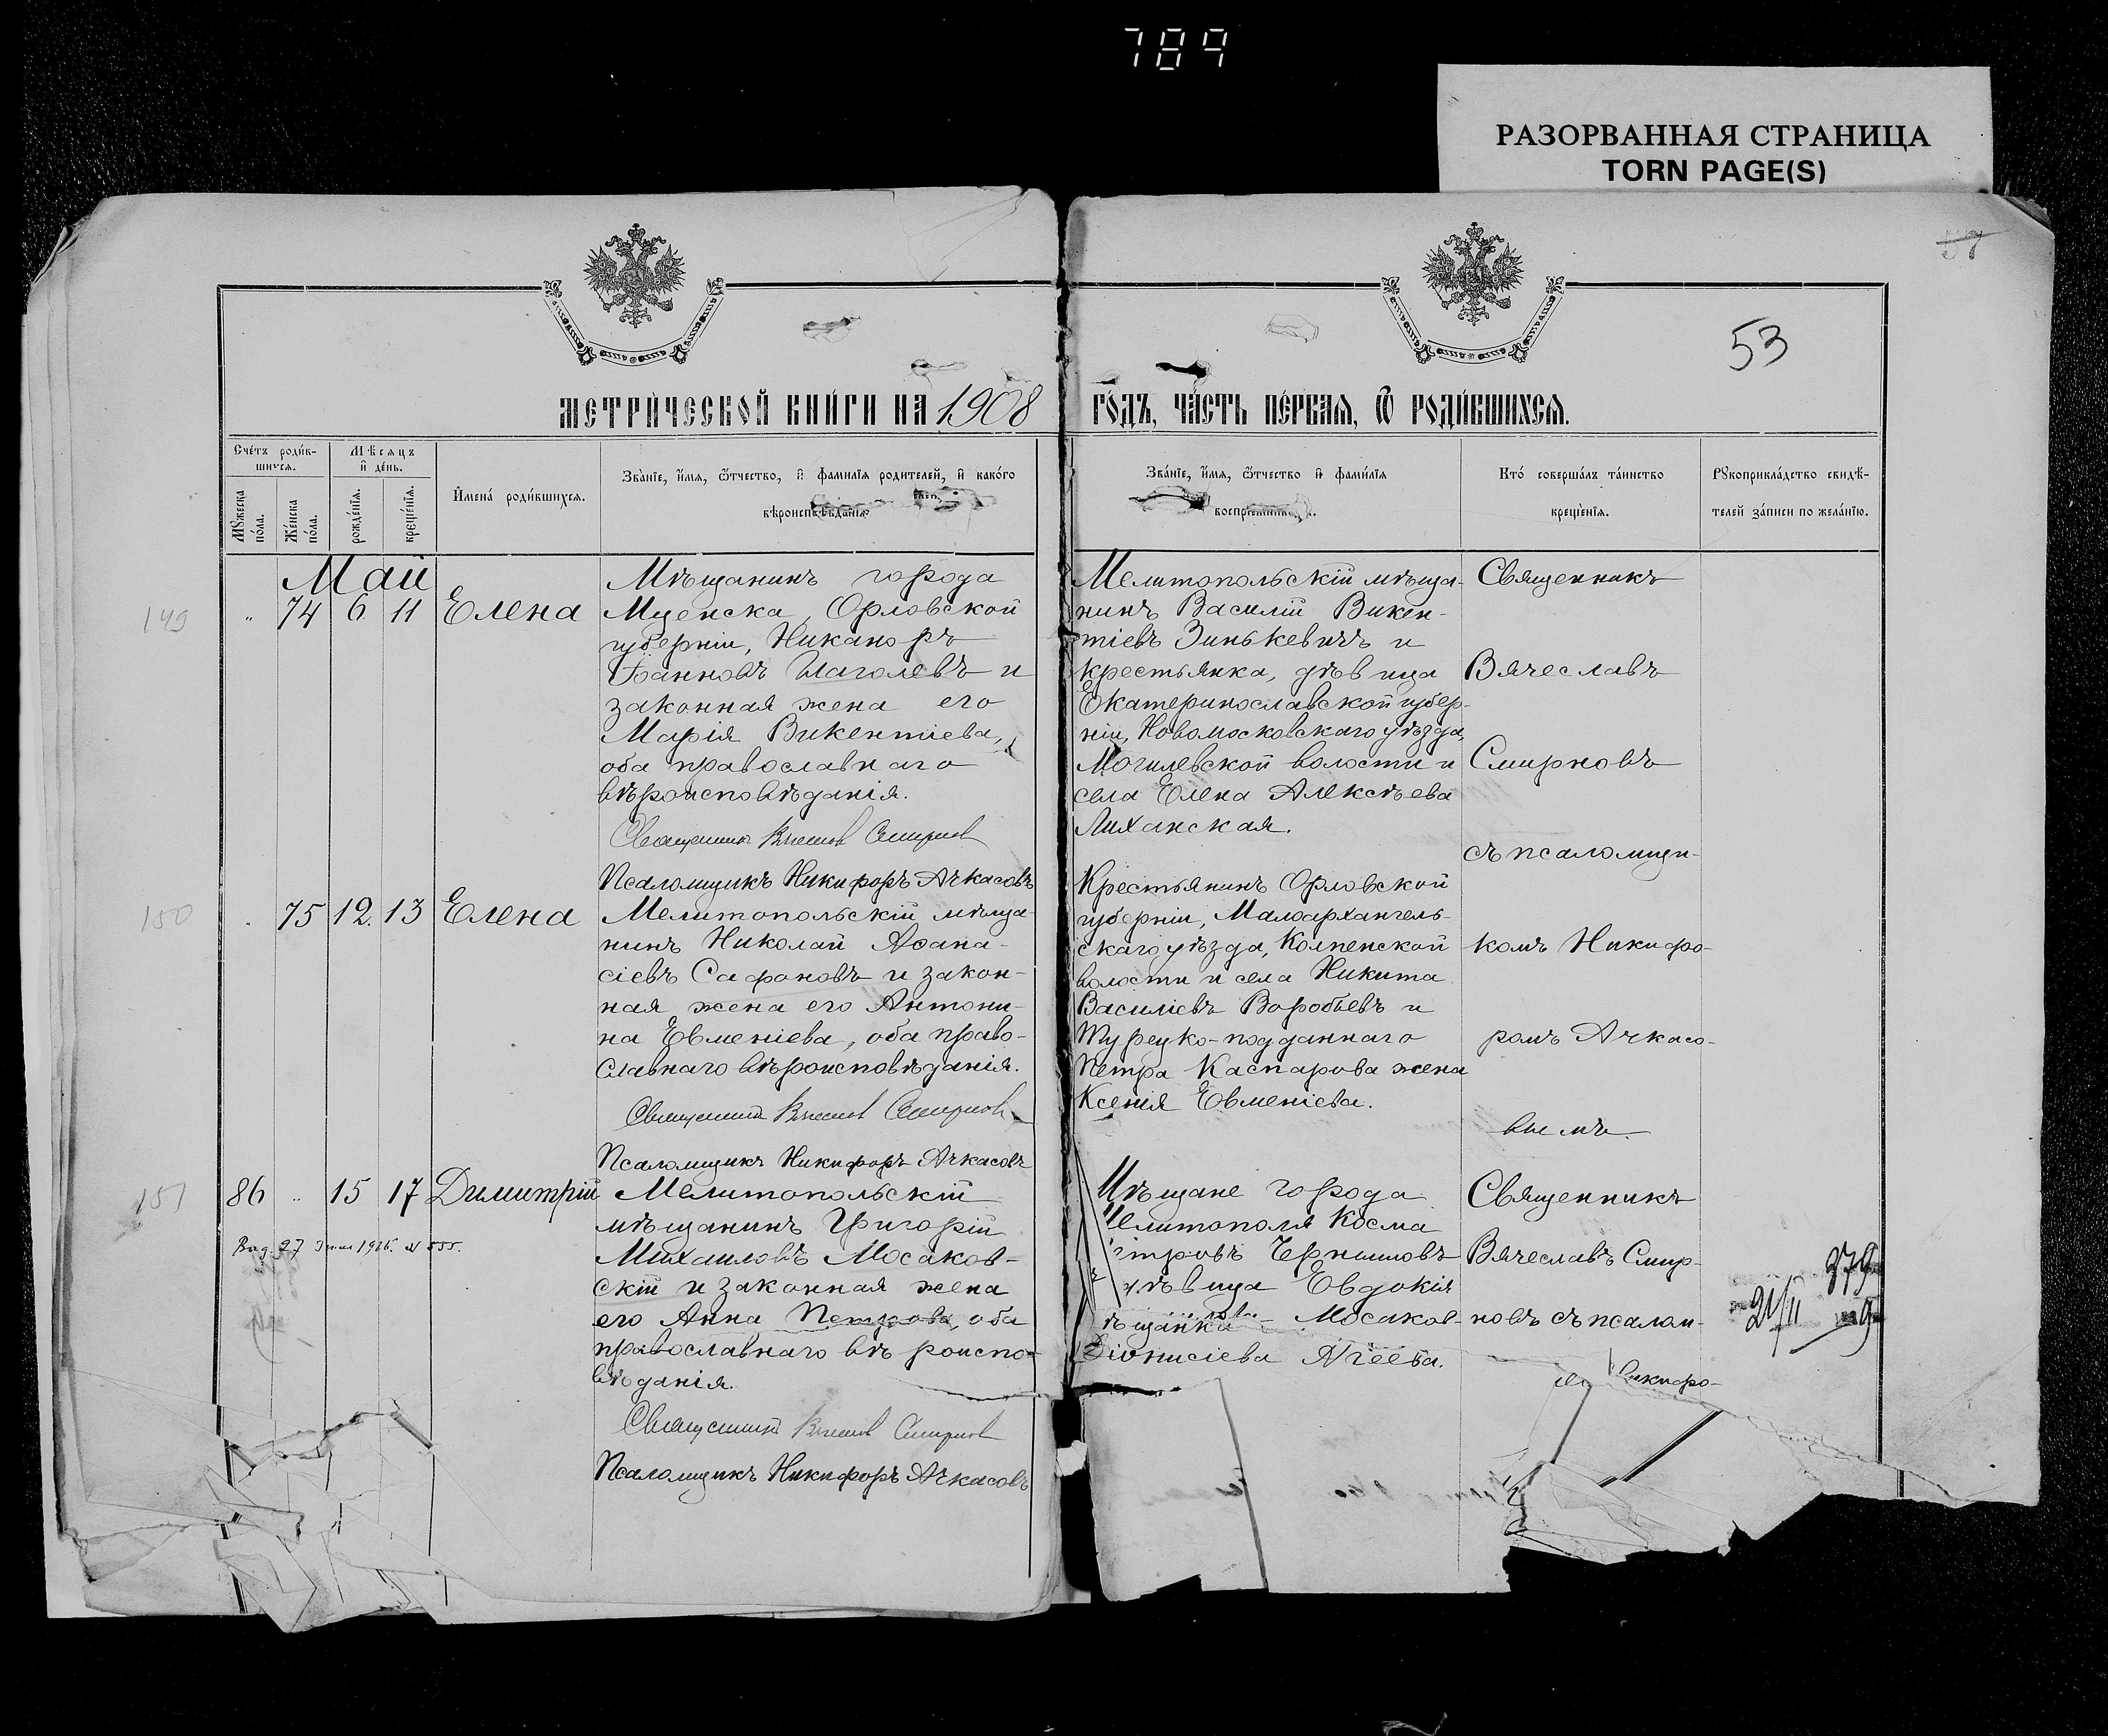 789
РАЗОРВАННАЯ СТРАНИЦА
TORN PAGE(S)
57
53
МЕТРИ́ЧЕСКОЙ КНИ́ГИ НА 1908
ГО́ДЪ, ЧА́СТЬ ПЕ́РВАЯ, Ѿ РОДИ́ВШИХСЯ.
Сче́тъ роди́в-
шихся.
Мѣсяцъ
и҆ де́нь.
Мꙋ́жеска
по́ла.
Же́нска
по́ла.
рожде́нїя.
креще́нїя.
И҆мена́ роди́вшихся.
Зва́нїе, и҆́мя, ѻ҆́тчество, и҆ фами́лїя роди́телей, и҆ како́го
вѣроисповѣ́данїя.
Зва́нїе, и҆́мя, ѻ҆́тчество и҆ фами́лїя
воспрїе́мниковъ.
Кто́ соверша́лъ та́инство
креще́нїя.
Рꙋкоприкла́дство свидѣ́-
телей за́писи по жела́нїю.
Май
149
" 74 6 11 Елена
Мѣщанинъ города
Мценска, Орловской
губерніи, Никаноръ
Іоанновъ Глаголевъ и
законная жена его
Марія Викентіева,
оба православнаго
вѣроисповѣданія.
Священникъ Вячеслав Смирнов
Псаломщикъ Никифоръ Ачкасовъ
Мелитопольскій мѣща-
нинъ Василій Викен-
тіевъ Зинькевичъ и
крестьянка, дѣвица
Екатеринославской губер-
ніи, Новомосковскаго уѣзда,
Могилевской волости и
села Елена Алексѣева
Лиханская.
Священникъ
Вячеславъ
Смирновъ
съ псаломщи-
150
75 12. 13 Елена
Мелитопольскій мѣща-
нинъ Николай Аѳана-
сіевъ Сафоновъ и закон-
ная жена его Антони-
на Евменіева, оба право-
славнаго вѣроисповѣданія.
Священникъ Вячеслав Смирнов
Псаломщикъ Никифоръ Ачкасовъ
Крестьянинъ Орловской
губерніи, Малоархангель-
скаго уѣзда, Колпенской
волости и села Никита
Василіевъ Воробьевъ и
Турецко-подданнаго
Петра Каспарова жена
Ксенія Евменіева.
комъ Никифо-
ромъ Ачкасо-
вымъ.
151
86 " 15 17 Димитрій
Выд. 27 1926. № 555.
Мелитопольскій
мѣщанинъ Григорій
Михаиловъ Мосаков-
скій и законная жена
его Анна Петрова, оба
православнаго вѣроиспо-
вѣданія.
Священникъ Вячеслав Смирнов
Псаломщикъ Никифоръ Ачкасовъ
Мѣщане города
Мелитополя Косма
дѣвица Евдокія
Мосаков-
Діонисіева Агеева.
Священникъ
Вячеславъ Смир-
новъ съ псалом-
Никифо-
379
21/II